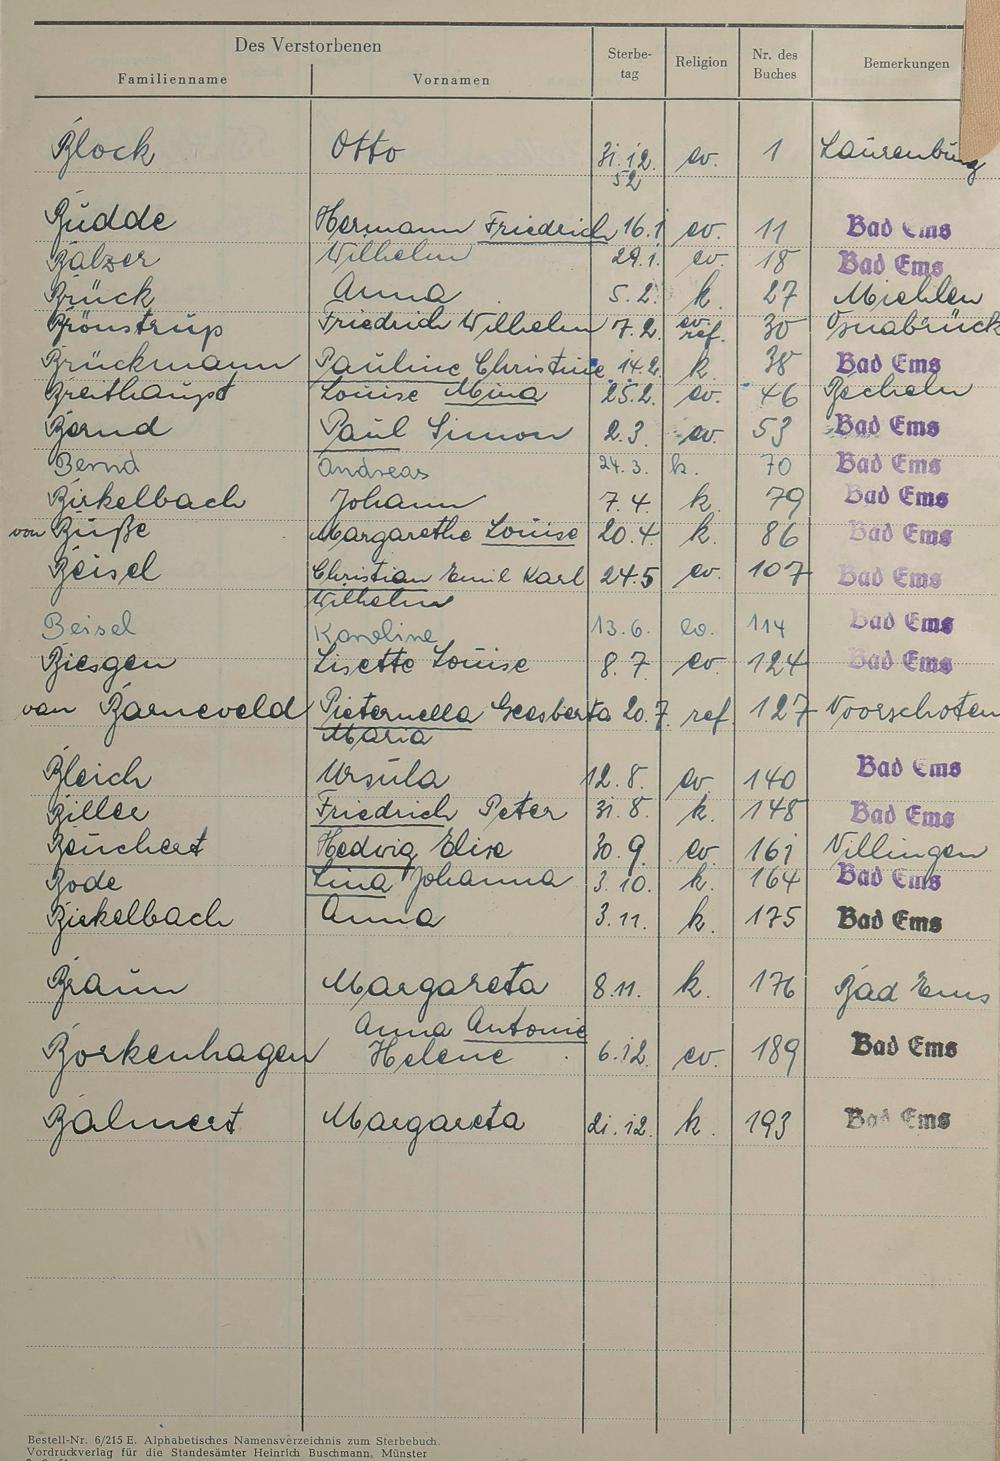 Des Verstorbenen
Familienname Vornamen Sterbe-tag Religion Nr. des Buches Bemerkungen
Block Otto 31.12. 52 ev. 1 Laurenburg
Budde Hermann Friedrich 16.1 ev. 11 Bad Ems
Balzer Wilhelm 29.1. ev. 18 Bad Ems
Brück Anna 5.2. k. 27 Miehlen
Brönstrup Friedrich Wilhelm 7.2. ev. ref. 30 Osnabrück
Brückmann Pauline Christine 14.2. k. 38 Bad Ems
Breithaupt Louise Mina 25.2. ev. 46 Becheln
Bernd Paul Simon 2.3. ev. 53 Bad Ems
Bernd Andreas 24.3. k. 70 Bad Ems
Birkelbach Johann 7.4. k. 79 Bad Ems
von Buße Margarethe Louise 20.4. k. 86 Bad Ems
Beisel Christian Emil Karl 24.5 ev. 107 Bad Ems
Wilhelm
Beisel Karoline 13.6. ev. 114 Bad Ems
Biesgen Lisette Louise 8.7. ev. 124 Bad Ems
van Barneveld Pieternella Geesberta 20.7. ref. 127 Voorschoten
Maria
Bleich Ursula 12.8. ev. 140 Bad Ems
Biller Friedrich Peter 31.8. k. 148 Bad Ems
Beuchert Hedwig Elise 30.9. ev. 161 Villingen
Bode Lina Johanna 3.10. k. 164 Bad Ems
Birkelbach Anna 3.11. k. 175 Bad Ems
Braun Margareta 8.11. k. 176 Bad Ems
Anna Antonie
Borkenhagen Helene 6.12. ev. 189 Bad Ems
Balmert Margareta 21.12. k. 193 Bad Ems
Bestell-Nr. 6/215 E. Alphabetisches Namensverzeichnis zum Sterbebuch.
Vordruckverlag für die Standesämter Heinrich Buschmann, Münster